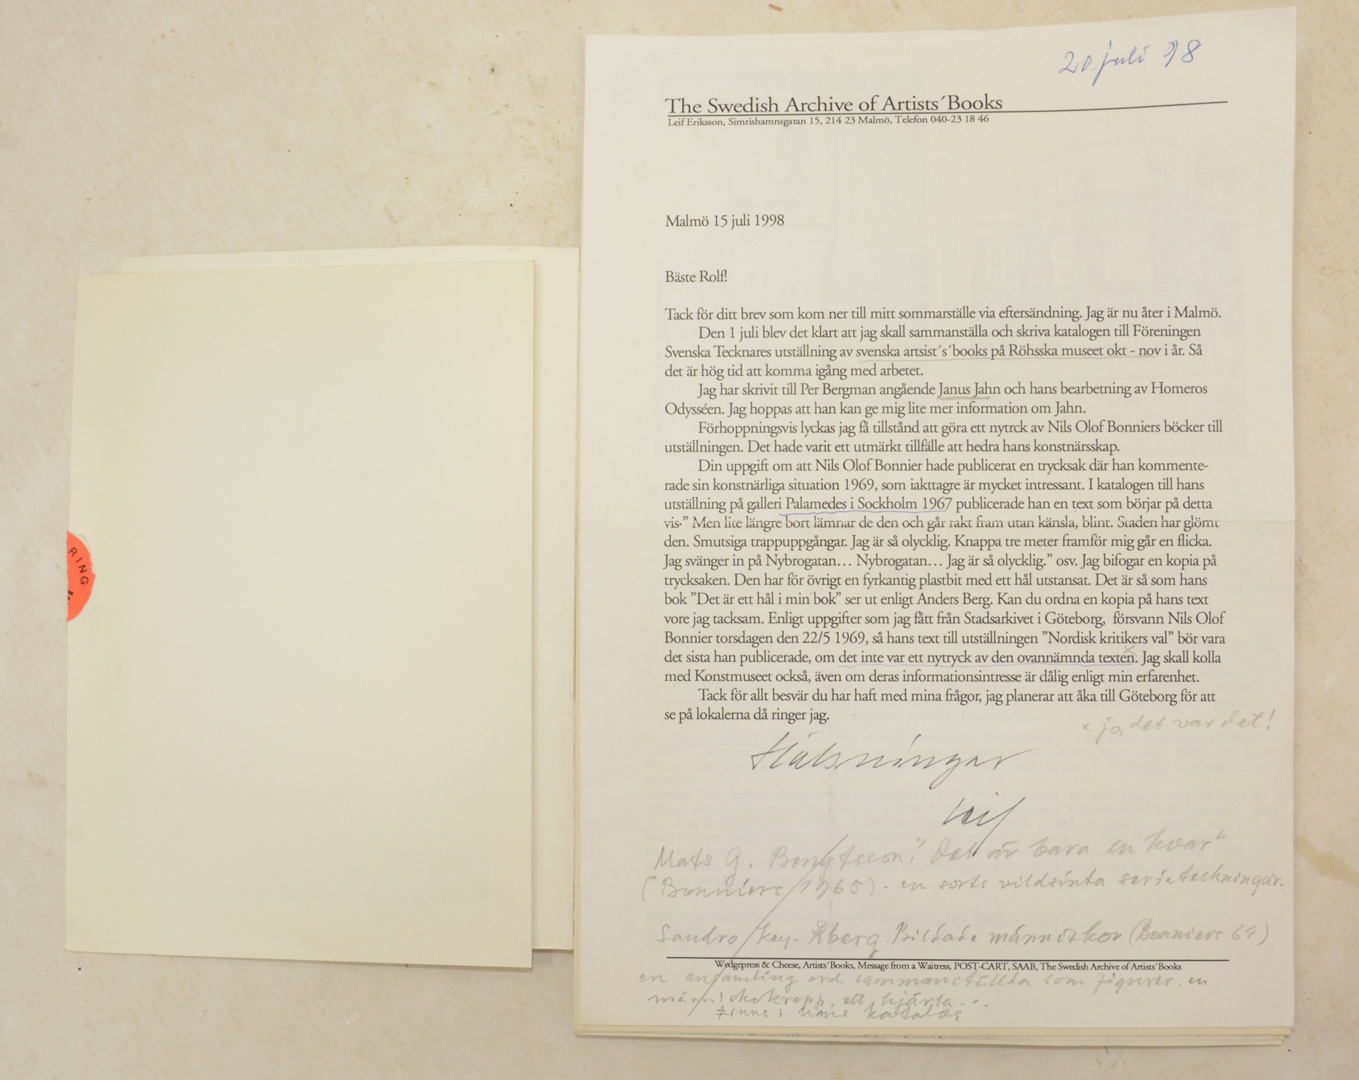 RING
20 juli 98
The Swedish Archive of Artists´Books
Leif Eriksson, Simrishamnsgatan 15, 214 23 Malmö, Telefon 040-23 18 46
Malmö 15 juli 1998
Bäste Rolf!
Tack för ditt brev som kom ner till mitt sommarställe via eftersändning. Jag är nu åter i Malmö.
Den 1 juli blev det klart att jag skall sammanställa och skriva katalogen till Föreningen
Svenska Tecknares utställning av svenska artsist´s´books på Röhsska museet okt - nov i år. Så
det är hög tid att komma igång med arbetet.
Jag har skrivit till Per Bergman angående Janus Jahn och hans bearbetning av Homeros
Odysséen. Jag hoppas att han kan ge mig lite mer information om Jahn.
Förhoppningsvis lyckas jag få tillstånd att göra ett nytrck av Nils Olof Bonniers böcker till
utställningen. Det hade varit ett utmärkt tillfälle att hedra hans konstnärsskap.
Din uppgift om att Nils Olof Bonnier hade publicerat en trycksak där han kommente-
rade sin konstnärliga situation 1969, som iakttagre är mycket intressant. I katalogen till hans
utställning på galleri Palamedes i Sockholm 1967 publicerade han en text som börjar på detta
vis·" Men lite längre bort lämnar de den och går rakt fram utan känsla, blint. Staden har glömt
den. Smutsiga trappuppgångar. Jag är så olycklig. Knappa tre meter framför mig går en flicka.
Jag svänger in på Nybrogatan… Nybrogatan… Jag är så olycklig." osv. Jag bifogar en kopia på
trycksaken. Den har för övrigt en fyrkantig plastbit med ett hål utstansat. Det är så som hans
bok "Det är ett hål i min bok" ser ut enligt Anders Berg. Kan du ordna en kopia på hans text
vore jag tacksam. Enligt uppgifter som jag fått från Stadsarkivet i Göteborg, försvann Nils Olof
Bonnier torsdagen den 22/5 1969, så hans text till utställningen "Nordisk kritikers val" bör vara
det sista han publicerade, om det inte var ett nytryck av den ovannämnda texten. Jag skall kolla
med Konstmuseet också, även om deras informationsintresse är dålig enligt min erfarenhet.
Tack för allt besvär du har haft med mina frågor, jag planerar att åka till Göteborg för att
se på lokalerna då ringer jag.
x jo, det var det!
Hälsningar
Leif
Mats G. Bengtsson: "Det är bara en kvar"
(Bonniers 1965) - en sorts vildsinta serieteckningar.
Sandro Key-Åberg. Bildade människor (Bonniers 64)
Wedgepress & Cheese, Artists´Books, Message from a Waitress, POST-CART, SAAB, The Swedish Archive of Artists´Books
en ansamling ord sammanställda som figurer. en
människokropp, ett hjärta...
Finns i hans katalog